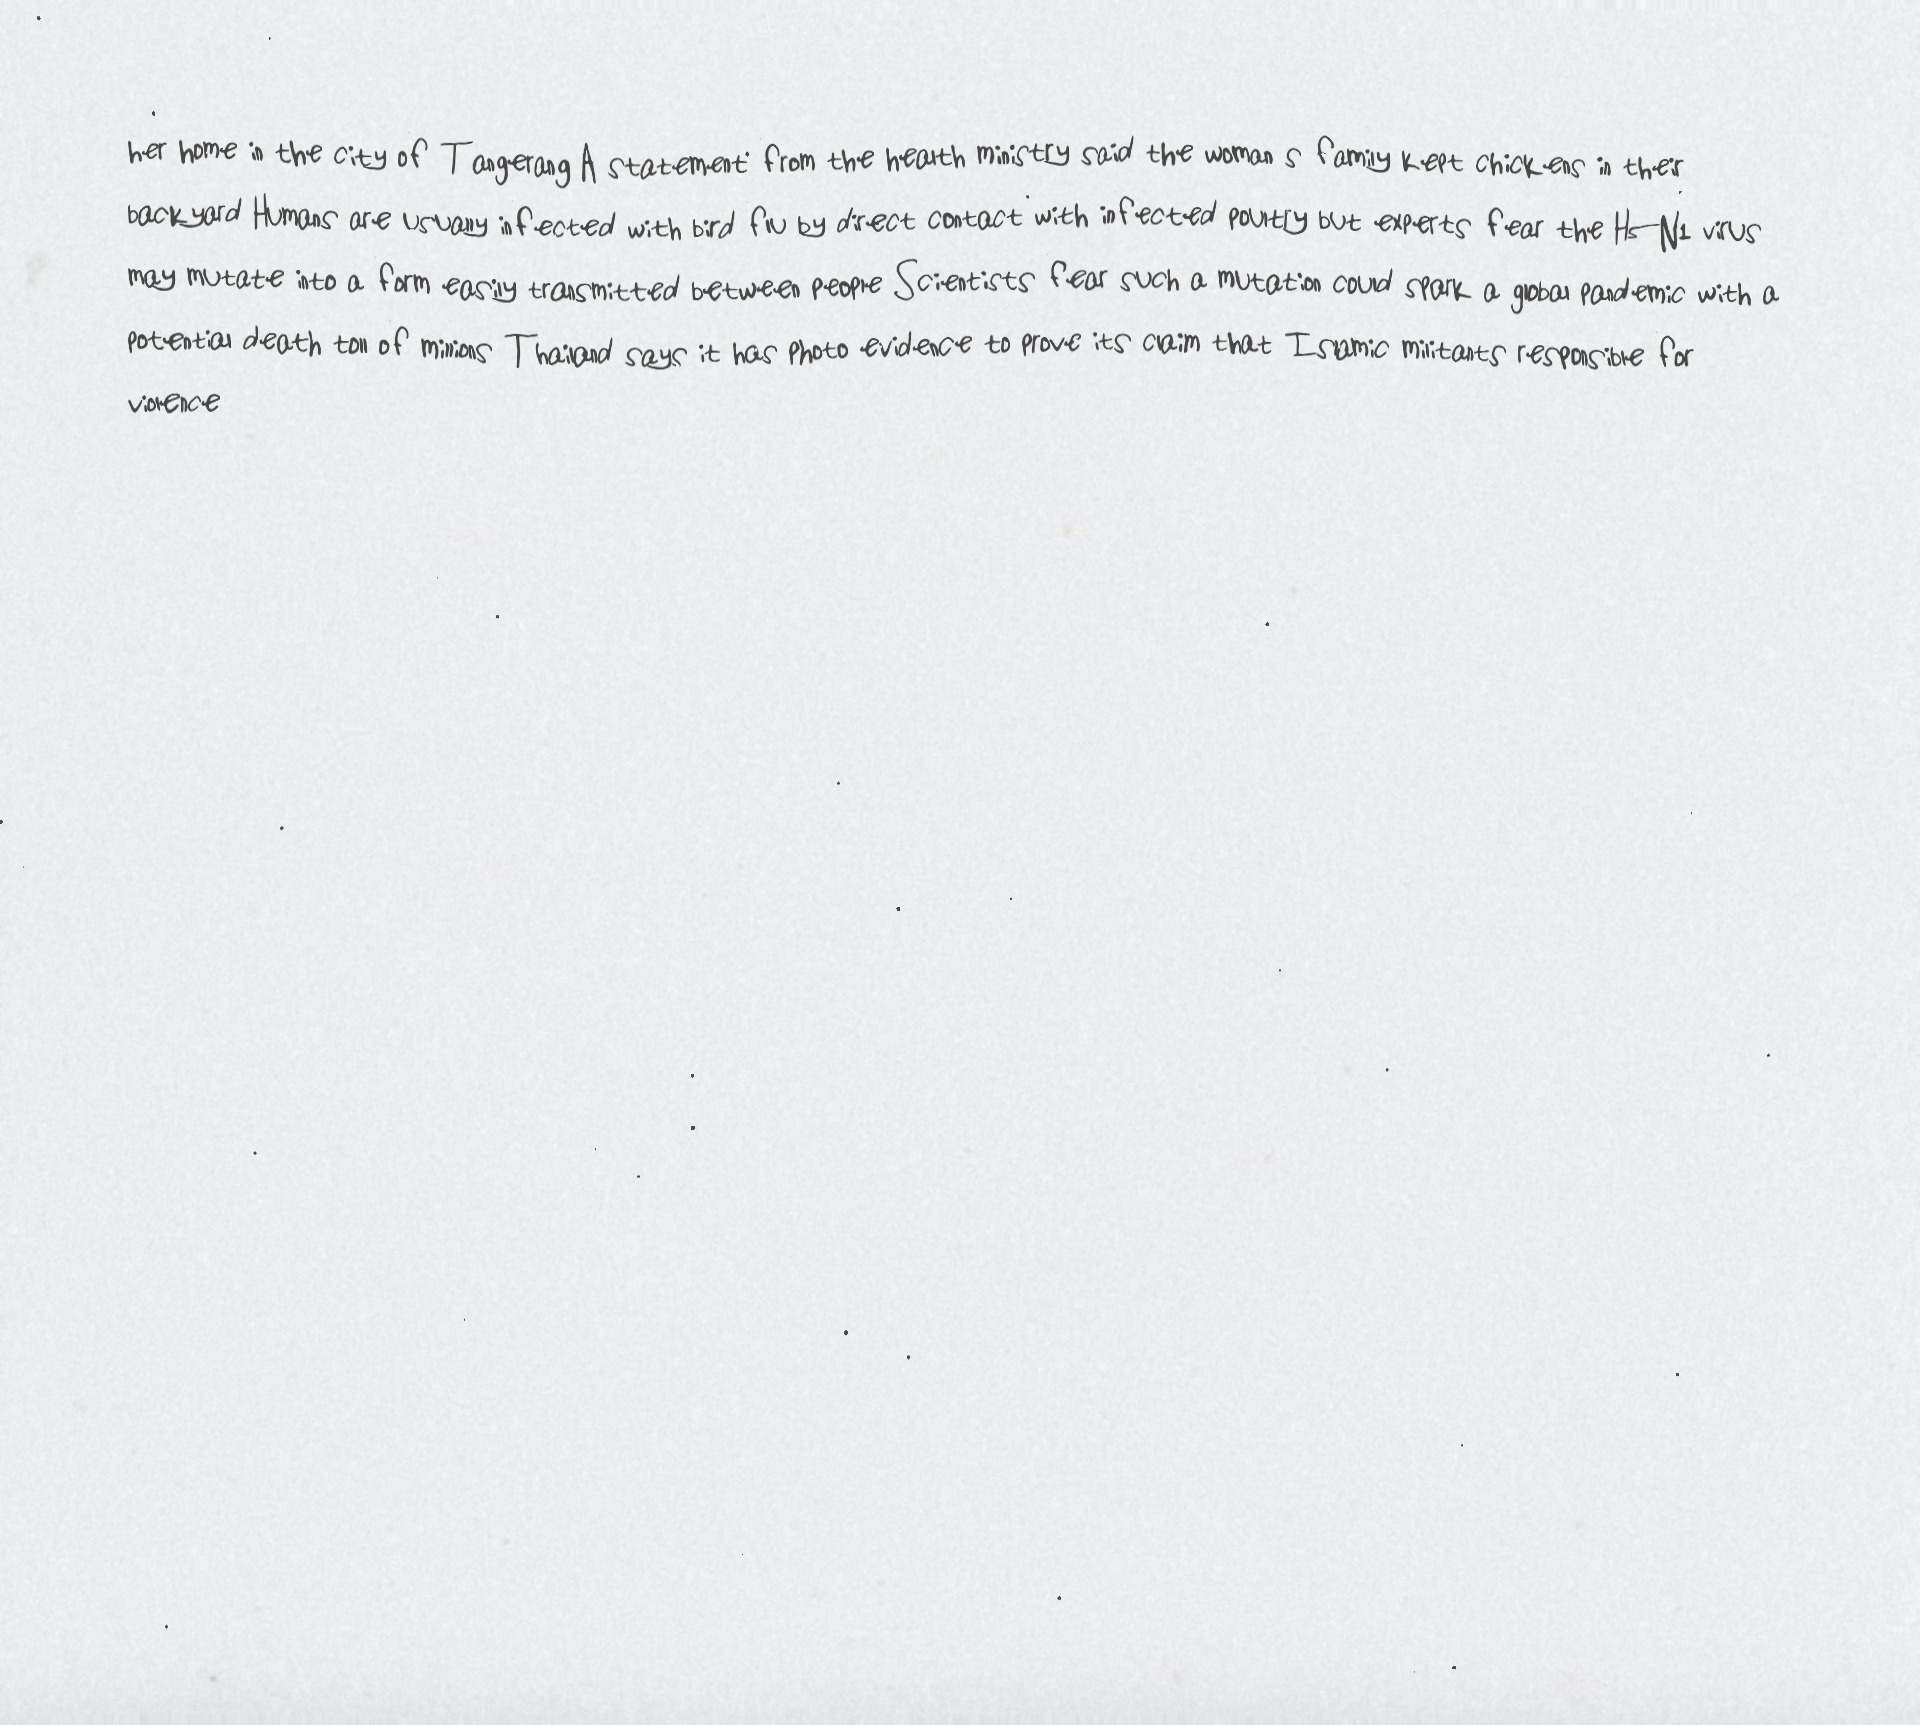 her home in the city of Tangerang A statement from the health ministry said the woman s family kept chickens in their
backyard Humans are usually infected with bird flu by direct contact with infected poultry but experts fear the H5-N1 virus
may mutate into a form easily transmitted between people Scientists fear such a mutation could spark a global pandemic with a
potential death toll of millions Thailand says it has photo evidence to prove its claim that Islamic militants responsible for
violence